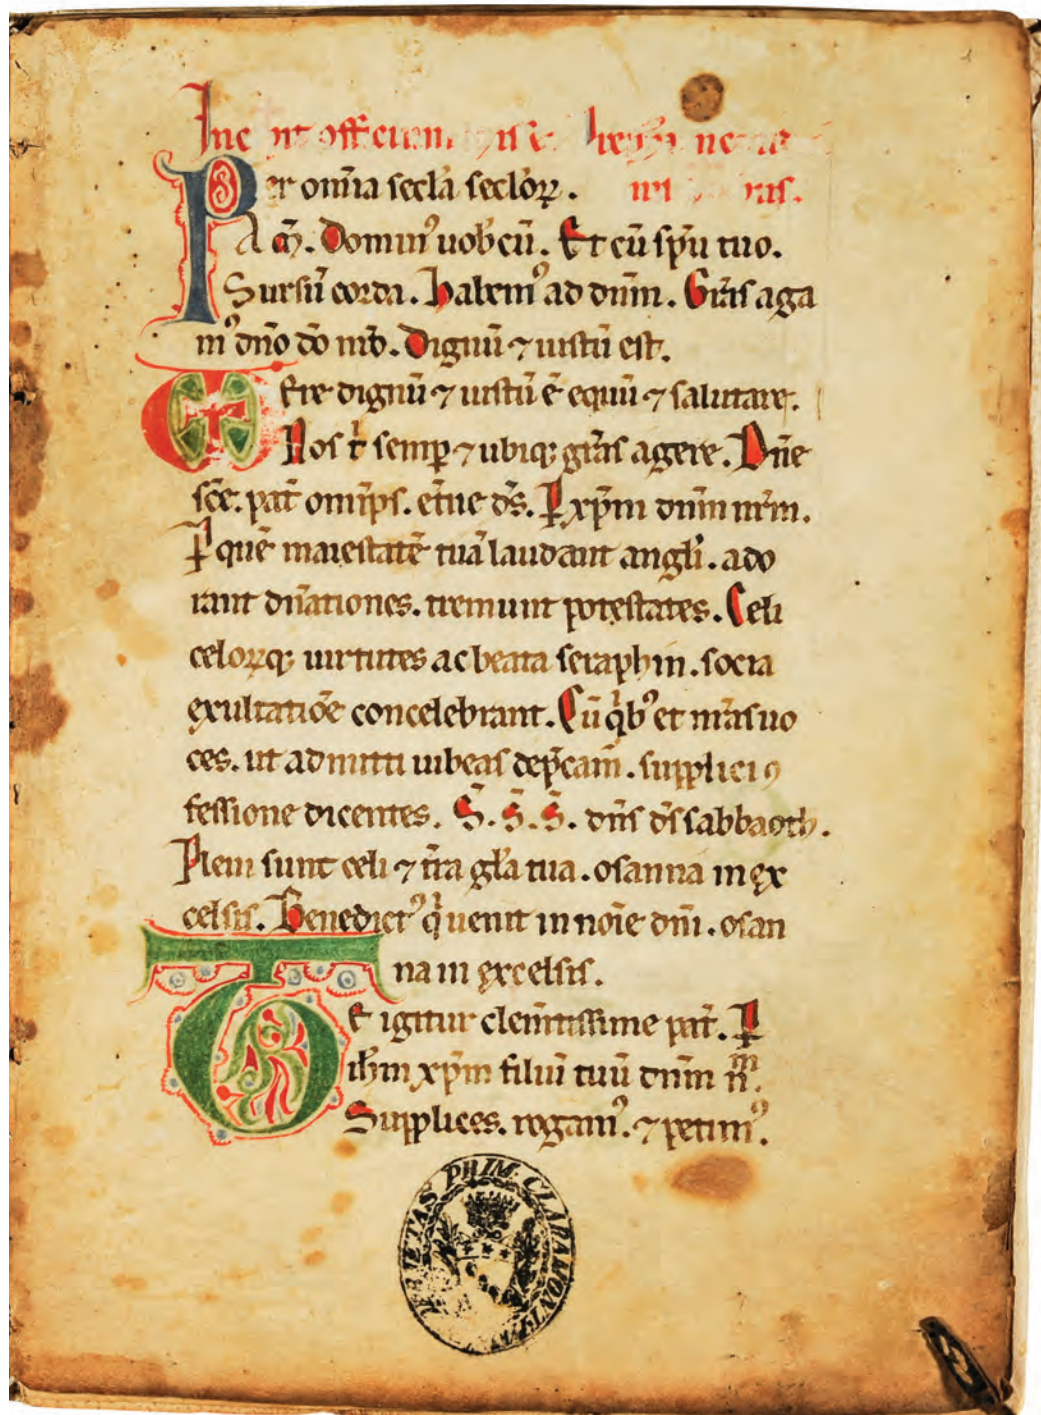 Per om̄ia secl̄a secl̄oꝝ.
Am̄. Dominꝰ uob̄ cū. Et cū sp̄u tuo.
Sursū corda. Habemꝰ ad dn̄m. Gr̄as aga
mꝰ dn̄o dō nr̄o. Dignū ⁊ iustū est.
Ere dignū ⁊ iustū ē equū ⁊ salutare.
Nos t͛ semꝑ ⁊ ubiqꝫ gr̄as agere. Dn̄e
sc̄e. pat͛ om̄ips. et̄ne ds̄. Ꝑ xp̄m dn̄m nr̄m.
Ꝑ quē maiestatē tuā laudant angl̄i. ado
rant dn̄ationes. tremunt potestates. Celi
celoꝝqꝫ uirtutes ac beata seraphin. socia
exultatiōe concelebrant. Cū qͥbꝰ et nr̄as uo
ces. ut admitti iubeas dep̄cam̄. supplici ꝯ
fessione dicentes. S̄. S̄. S̄. dn̄s ds̄ sabbaoth.
Pleni sunt celi ⁊ tr̄a gl̄a tua. osanna in ex
celsis. Benedictꝰ qͥ uenit in noīe dn̄i. osan
na in excelsis.
TE igitur clem̄tissime pat͛. Ꝑ
ih̄m xp̄m filiū tuū dn̄m nᵐ.
Supplices. rogamꝰ. ⁊ petimꝰ.
PRIM. CLARAMONT